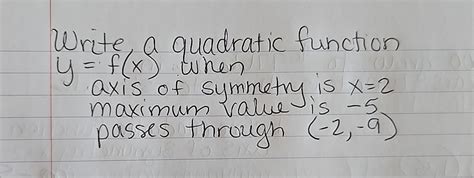 Write a quadratic function
y = f(x) when
axis of symmetry is x=2
maximum value is -5
passes through (-2,-9)